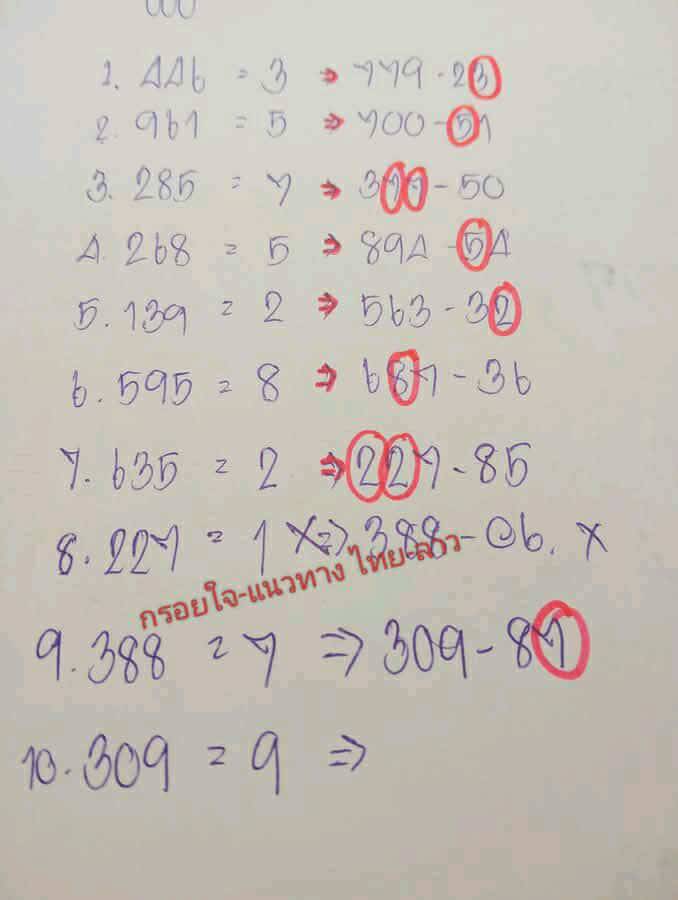 000
1. 446 = 3 ⇒ 779 - 23
2. 961 = 5 ⇒ 700 - 51
3. 285 = 7 ⇒ 377 - 50
4. 268 = 5 ⇒ 894 - 54
5. 139 = 2 ⇒ 563 - 32
6. 595 = 8 ⇒ 687 - 36
7. 635 = 2 ⇒ 227 - 85
8. 227 = 1 X ⇒ 388 - 06. X
กรอยใจ-แนวทาง ไทย-ลาว
9. 388 = 7 ⇒ 309 - 87
10. 309 = 9 ⇒